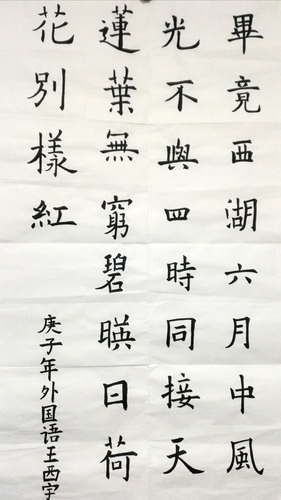 畢竟西湖六月中風
光不與四時同接天
蓮葉無窮碧暎日荷
花别樣紅
庚子年外国语王西宇